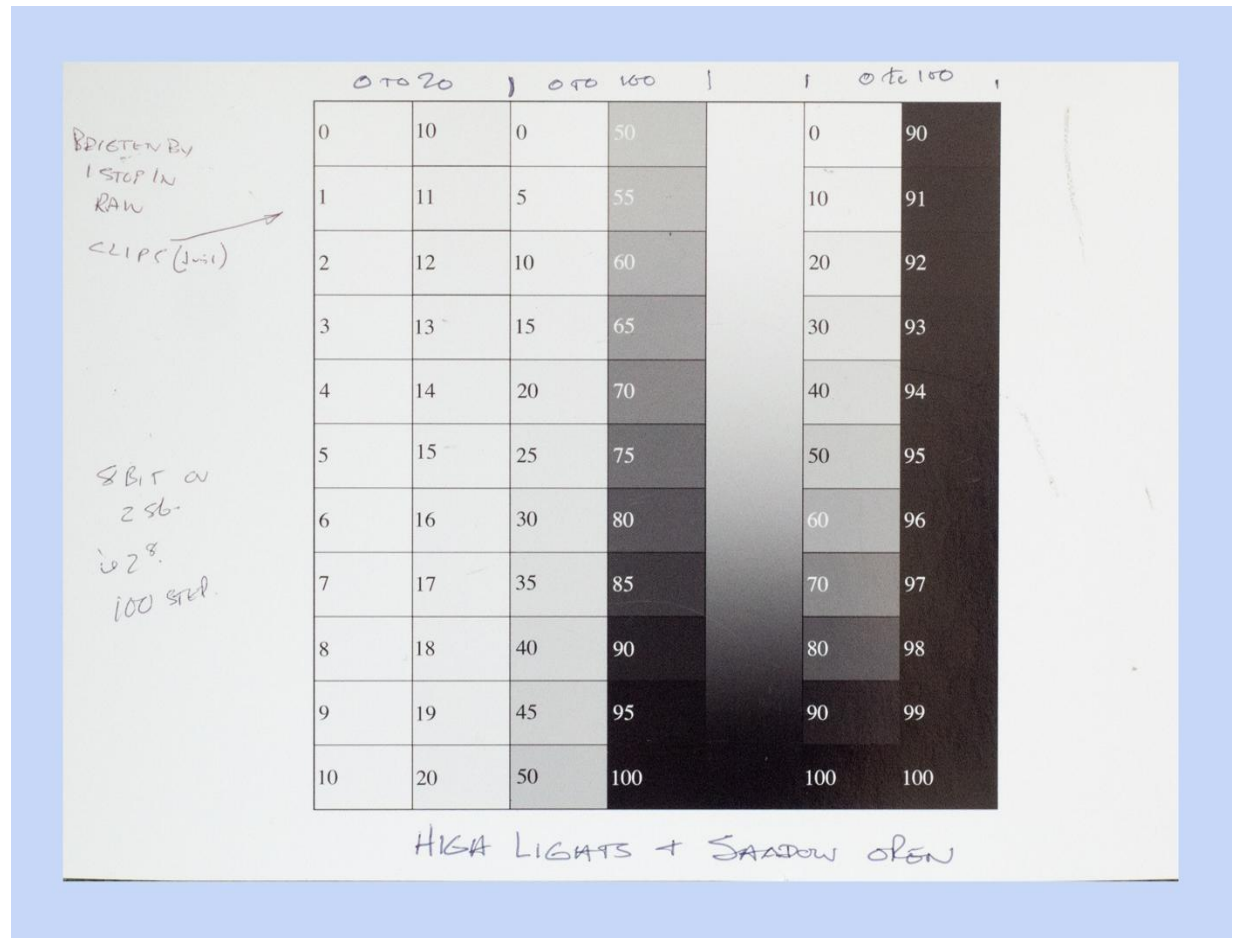 0 TO 20 0 TO 100 0 to 100
BRIGTEN BY
1 STOP IN
RAW
CLIPS
8 BIT
256
2⁸
100 STEP.
0 10 0 50 0 90
1 11 5 55 10 91
2 12 10 60 20 92
3 13 15 65 30 93
4 14 20 70 40 94
5 15 25 75 50 95
6 16 30 80 60 96
7 17 35 85 70 97
8 18 40 90 80 98
9 19 45 95 90 99
10 20 50 100 100 100
HIGH LIGHTS + SHADOW OPEN